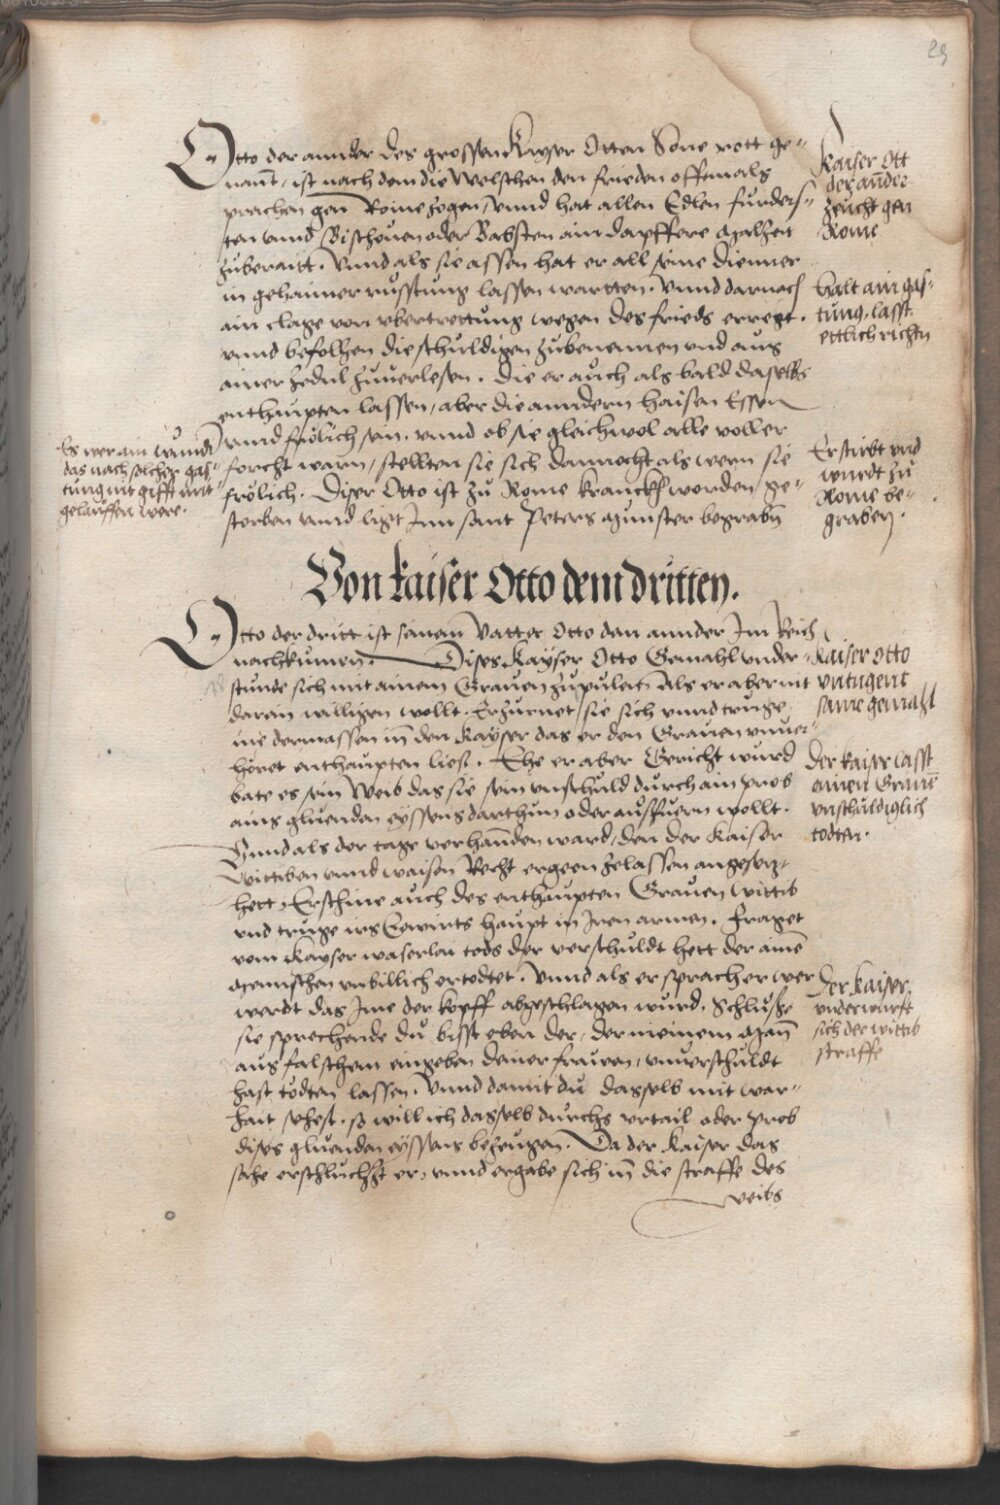 29
Otto der annder des grossen Kayser Otten Sone rott ge-
nant, ist nach dem die Welschen den frieden offtmals
prachen gen Rome zogen, unnd hat allen Edlen furders-
ten unnd Bischouen oder Babsten ain dapffere malzeit
zuberaitt. Unnd als sie assen hat er all seine Diener
in gehaimer russtung lassen wartten. Unnd darnach
ain clage von ubertrettung wegen des frieds erregt.
unnd befolhen die schuldigen zubenennen und aus
ainer zedul zuuerlesen. Die er auch als bald daselbs
enthaupten lassen, aber die anndern haisen Essen
unnd frölich sein. unnd ob sie gleichwol alle voller
forcht warn, stellten sie sich dannocht als wern sie
frölich. Diser Otto ist zu Rome kranckh worden ge-
storben unnd ligt Inn sant Peters munster begrabn
Kaiser Ott
der ander
zeucht gen
Rome
Halt ain gas-
tung, lasst
ettlich richten
Er stirbt und
wurdt zu
Rome be-
graben.
Es wer ain wunder
das nach solcher gas-
tung nit gifft mit
geluffen were.
Von kaiser Otto dem dritten.
Otto der dritt ist seinem Vatter Otto dem annder Im Reich
nachkumen. Dises Kayser Otto Gemahl under-
stunde sich mit ainem Grauen zupulen Als er aber nit
darein willigen wollt. Erzurnet sie sich unnd truge
ine dermassen in den Kayser das er den Grauen unuer-
höret enthaupten liess. Ehe er aber Gericht wurd
bate er sein Weib das sie sein unschuld durch ain prob
ains gluenden eyssens darthun oder aussfuern wollt.
Unnd als der tage verhanden ward, den der Kaiser
Wittiben unnd waisen Recht ergeen zelassen angesetzt
hett, Erschine auch des enthaupten Grauen wittib
und truge irs Eewirts haupt in Iren armen. fraget
vom Kayser waserlai tods der verschuldt hett der ainen
mennschen unbillich ertodtet. Unnd als er sprach er wer
werdt das Ime der kopff abgeschlagen wurd. Schlusse
sie sprechende du bist eben der, der meinem man
aus falschem eingeben deiner frawen, unverschuldt
hast tödten lassen. Unnd damit du dasselb mit war-
hait sehest. so will ich dasselb durchs urtail oder prob
dises gluenden eyssens bezeugen. Da der Kaiser das
sahe erschluchtzt er, unnd ergabe sich in die straffe des
weibs
Kaiser otto
untugent
same gemahl
Der kaiser lasst
ainen Grauen
unschuldiglich
todten.
Der kaiser
underwurfft
sich der wittib
straffe